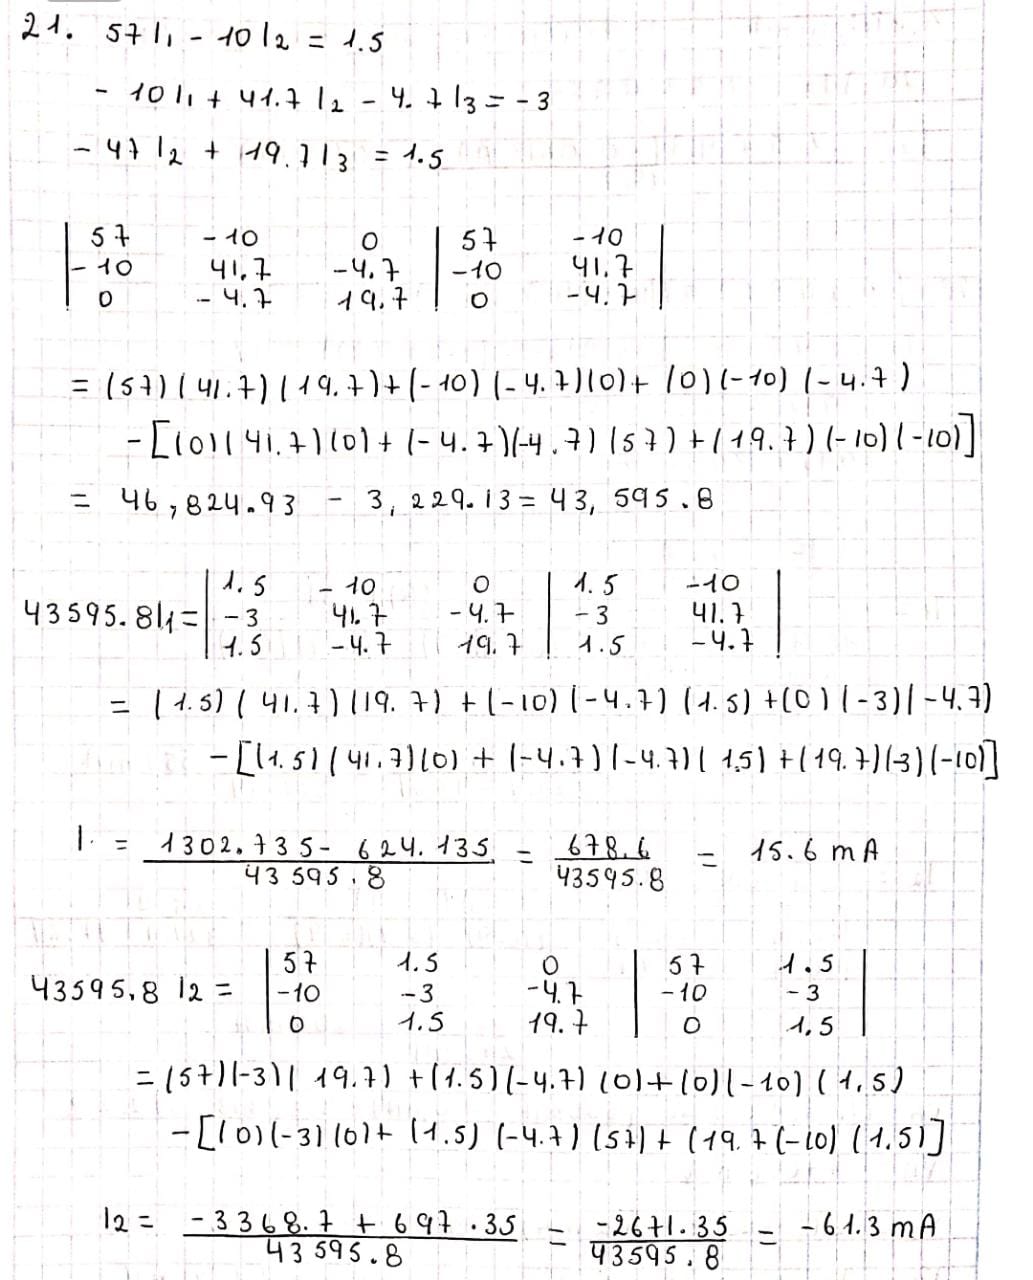 21. 57I1 - 10I2 = 1.5
- 10I1 + 41.7I2 - 4.7I3 = -3
- 47I2 + 19.7I3 = 1.5
| 57 -10 0 | 57 -10 |
| -10 41.7 -4.7 | -10 41.7 |
| 0 -4.7 19.7 | 0 -4.7 |
= (57)(41.7)(19.7)+(-10)(-4.7)(0)+(0)(-10)(-4.7)
-[(0)(41.7)(0)+(-4.7)(-4.7)(57)+(19.7)(-10)(-10)]
= 46,824.93 - 3,229.13 = 43,595.8
| 1.5 -10 0 | 1.5 -10 |
43595.8I1 = | -3 41.7 -4.7 | -3 41.7 |
| 1.5 -4.7 19.7 | 1.5 -4.7 |
= (1.5)(41.7)(19.7)+(-10)(-4.7)(1.5)+(0)(-3)(-4.7)
-[(1.5)(41.7)(0)+(-4.7)(-4.7)(1.5)+(19.7)(-3)(-10)]
I = 1302.735 - 624.135 / 43595.8 = 678.6 / 43595.8 = 15.6 mA
| 57 1.5 0 | 57 1.5 |
43595.8 I2 = | -10 -3 -4.7 | -10 -3 |
| 0 1.5 19.7 | 0 1.5 |
= (57)(-3)(19.7)+(1.5)(-4.7)(0)+(0)(-10)(1.5)
-[(0)(-3)(0)+(1.5)(-4.7)(57)+(19.7(-10)(1.5)]
I2 = -3368.7 + 697.35 / 43595.8 = -2671.35 / 43595.8 = -61.3 mA